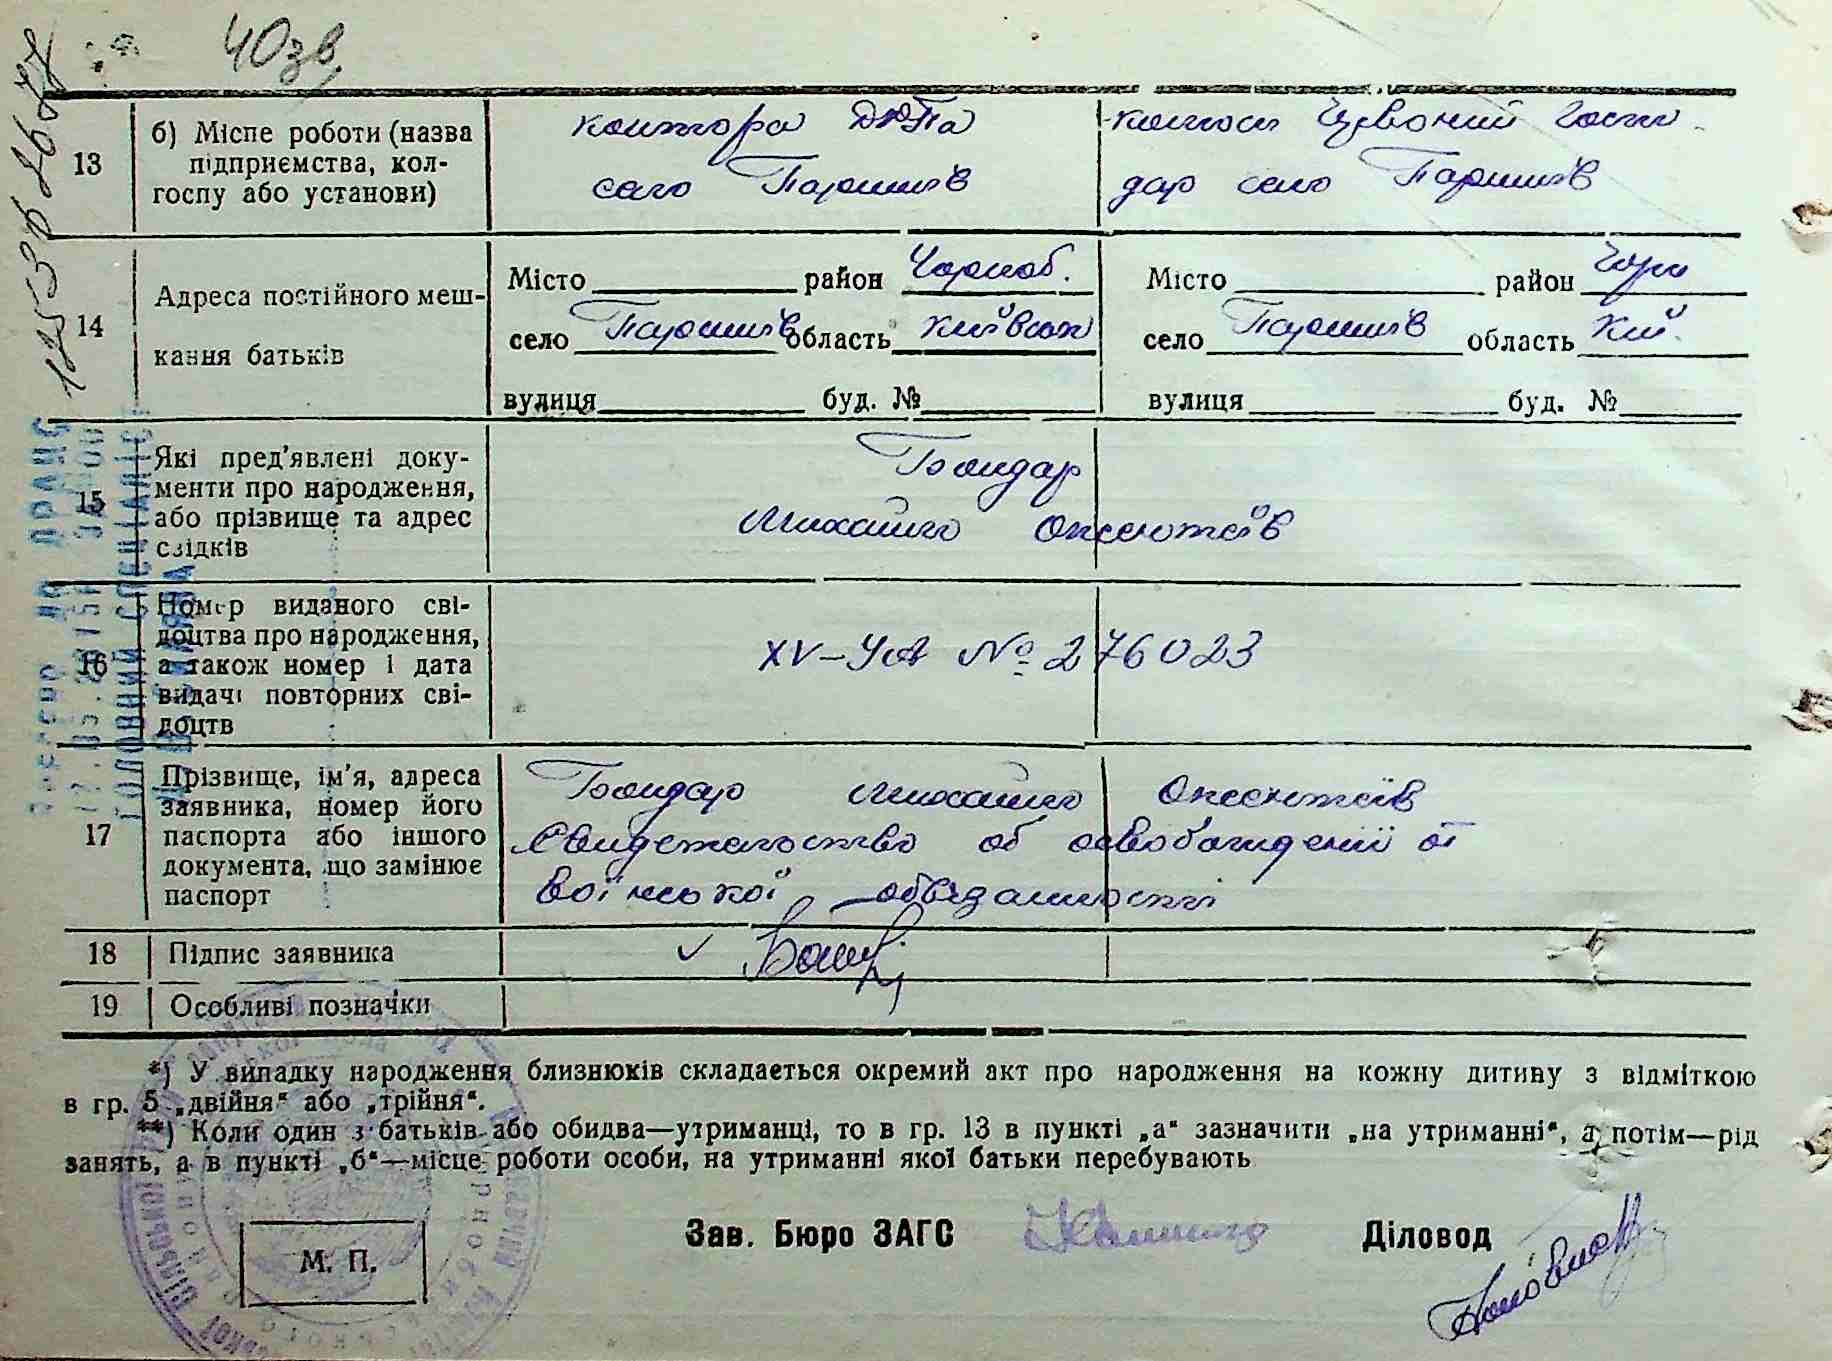 40зв,
13 б) Місце роботи (назва підприємства, колгоспу або установи)
контора
село Паришів
колгосп Червоний Госпо
дар село Паришів
14 Адреса постійного мешкання батьків
Місто район Чорноб.
село Паришів область Київськ
вулиця буд. №
Місто район Чорн
село Паришів область Киї.
вулиця буд. №
15 Які пред'явлені документи про народження, або прізвище та адрес свідків
Бондар
Михайло Оксентіїв
16 Номер виданого свідоцтва про народження, а також номер і дата видачі повторних свідоцтв
XV-УА № 276023
17 Прізвище, ім'я, адреса заявника, номер його паспорта або іншого документа, що замінює паспорт
Бондар Михайло Оксентіїв
Свидетельство об освобождении от
воінської обязанності
18 Підпис заявника
19 Особливі позначки
*) У випадку народження близнюків складається окремий акт про народження на кожну дитину з відміткою
в гр. 5 „двійня“ або „трійня“.
**) Коли один з батьків або обидва—утриманці, то в гр. 13 в пункті „а“ зазначити „на утриманні“, а потім—рід
занять, а в пункті „б“—місце роботи особи, на утриманні якої батьки перебувають
Зав. Бюро ЗАГС
Діловод
М. П.